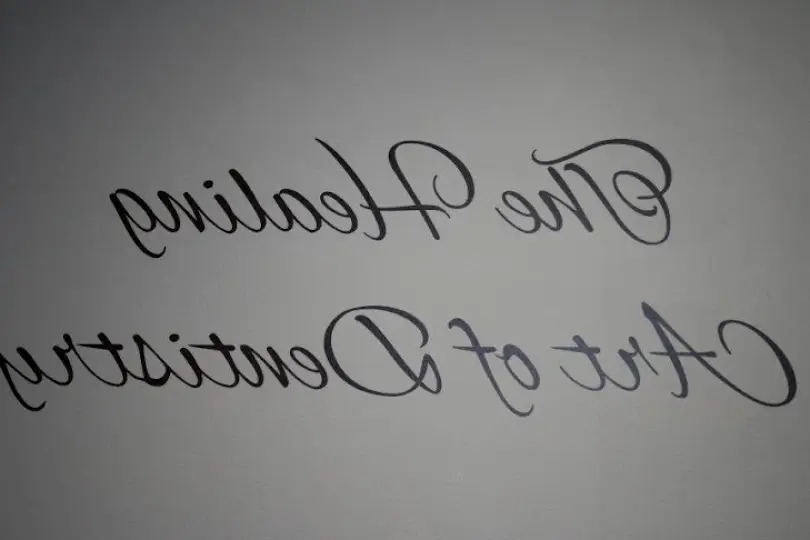 The Healing
Art of Dentistry